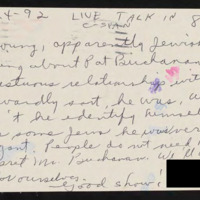 4-92 LIVE TALK IN 8
C-SPAN
oung, apparently Jewis
ing about Pat Buchanan
estuous relationship wit
wardly sort, he was, a
't he identify himsel
some Jews he was ver
gant. People do not need
pret Mr. Buchanan. We'll
ourselves.
Good show!